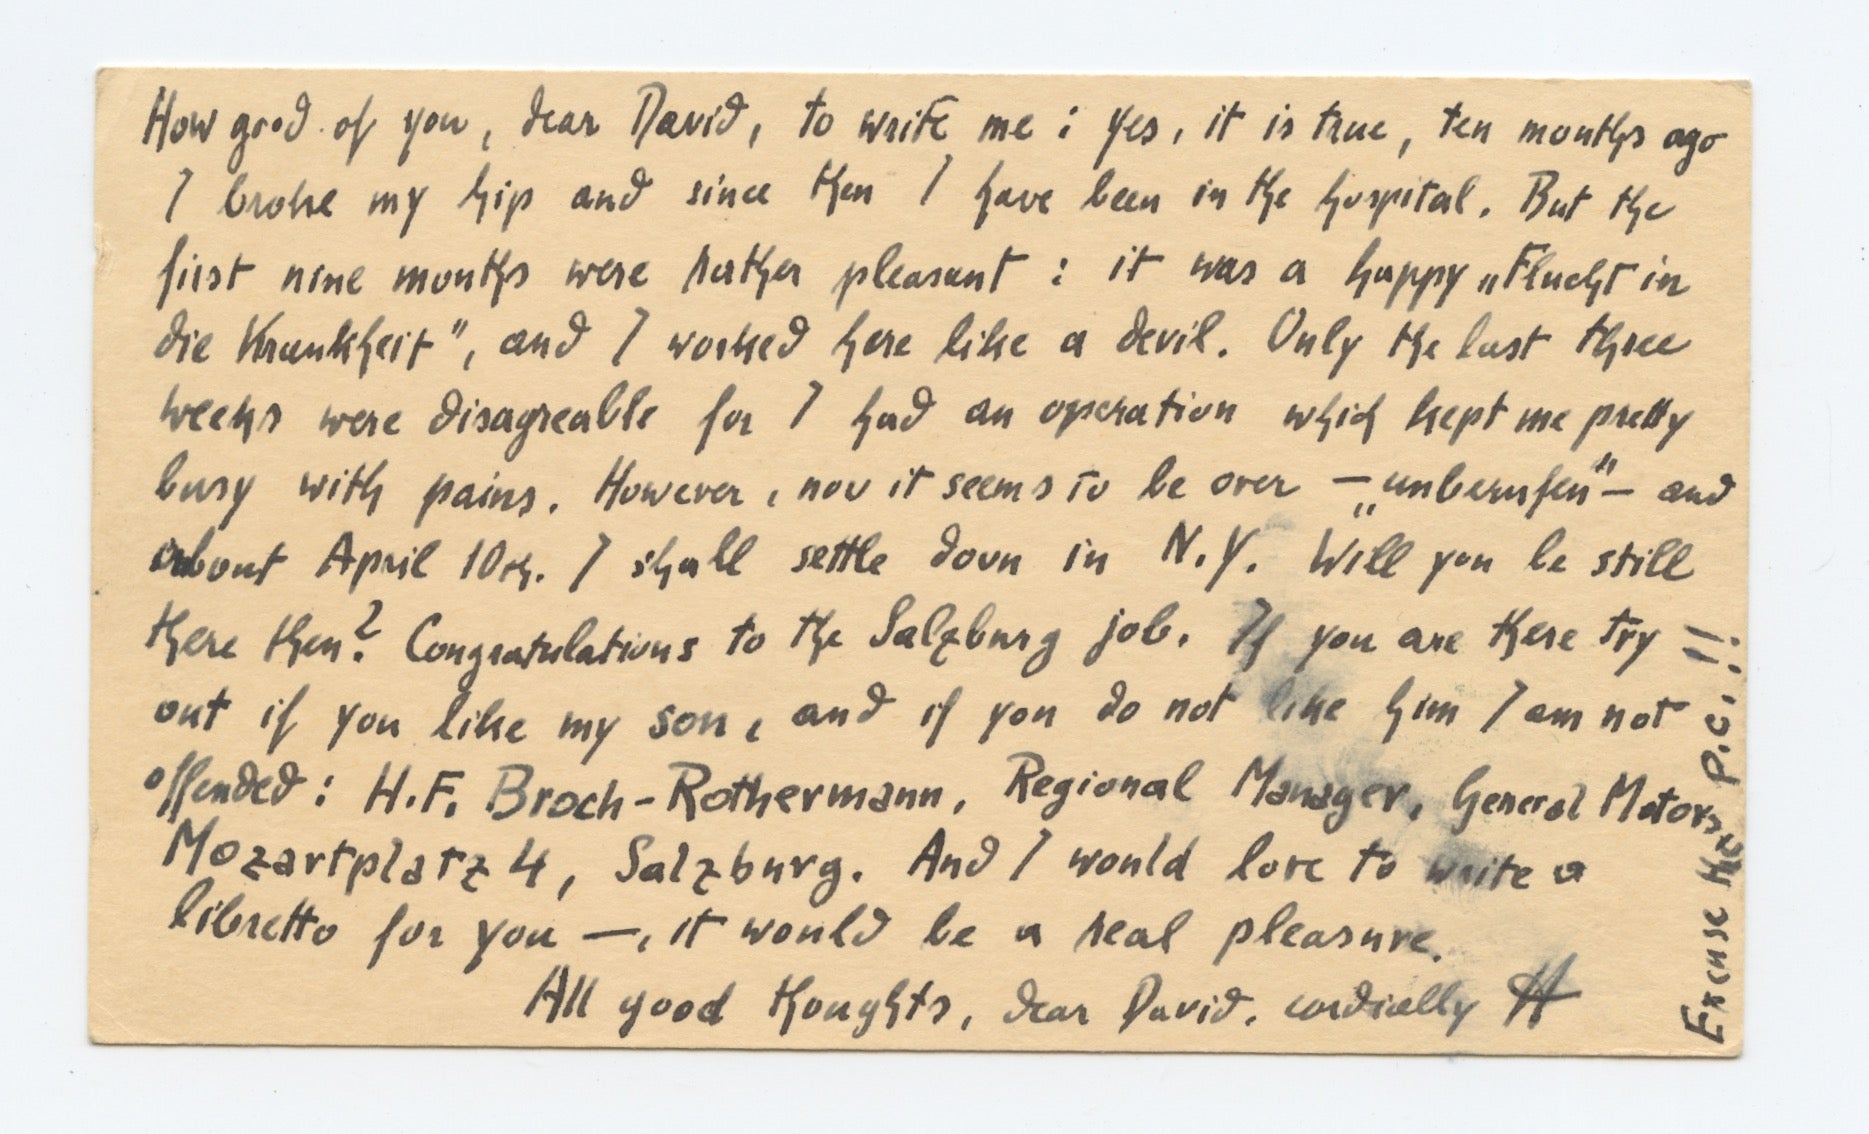 How good of you, dear David, to write me : Yes, it is true, ten months ago
I broke my hip and since then I have been in the hospital. But the
first nine months were rather pleasant : it was a happy „Flucht in
die Krankheit", and I worked here like a devil. Only the last three
weeks were disagreable for I had an operation which kept me pretty
busy with pains. However, nov it seems to be over — „unberufen" — and
about April 10th. I shall settle dovn in N.Y. Will you be still
there then? Congratulations to the Salzburg job. If you are there try
out if you like my son, and if you do not like him I am not
offended : H.F. Broch-Rothermann, Regional Manager, General Motors,
Mozartplatz 4, Salzburg. And I would love to write a
libretto for you —, it would be a real pleasure.
All good thoughts, dear David, cordially H
Excuse the P.C.!!